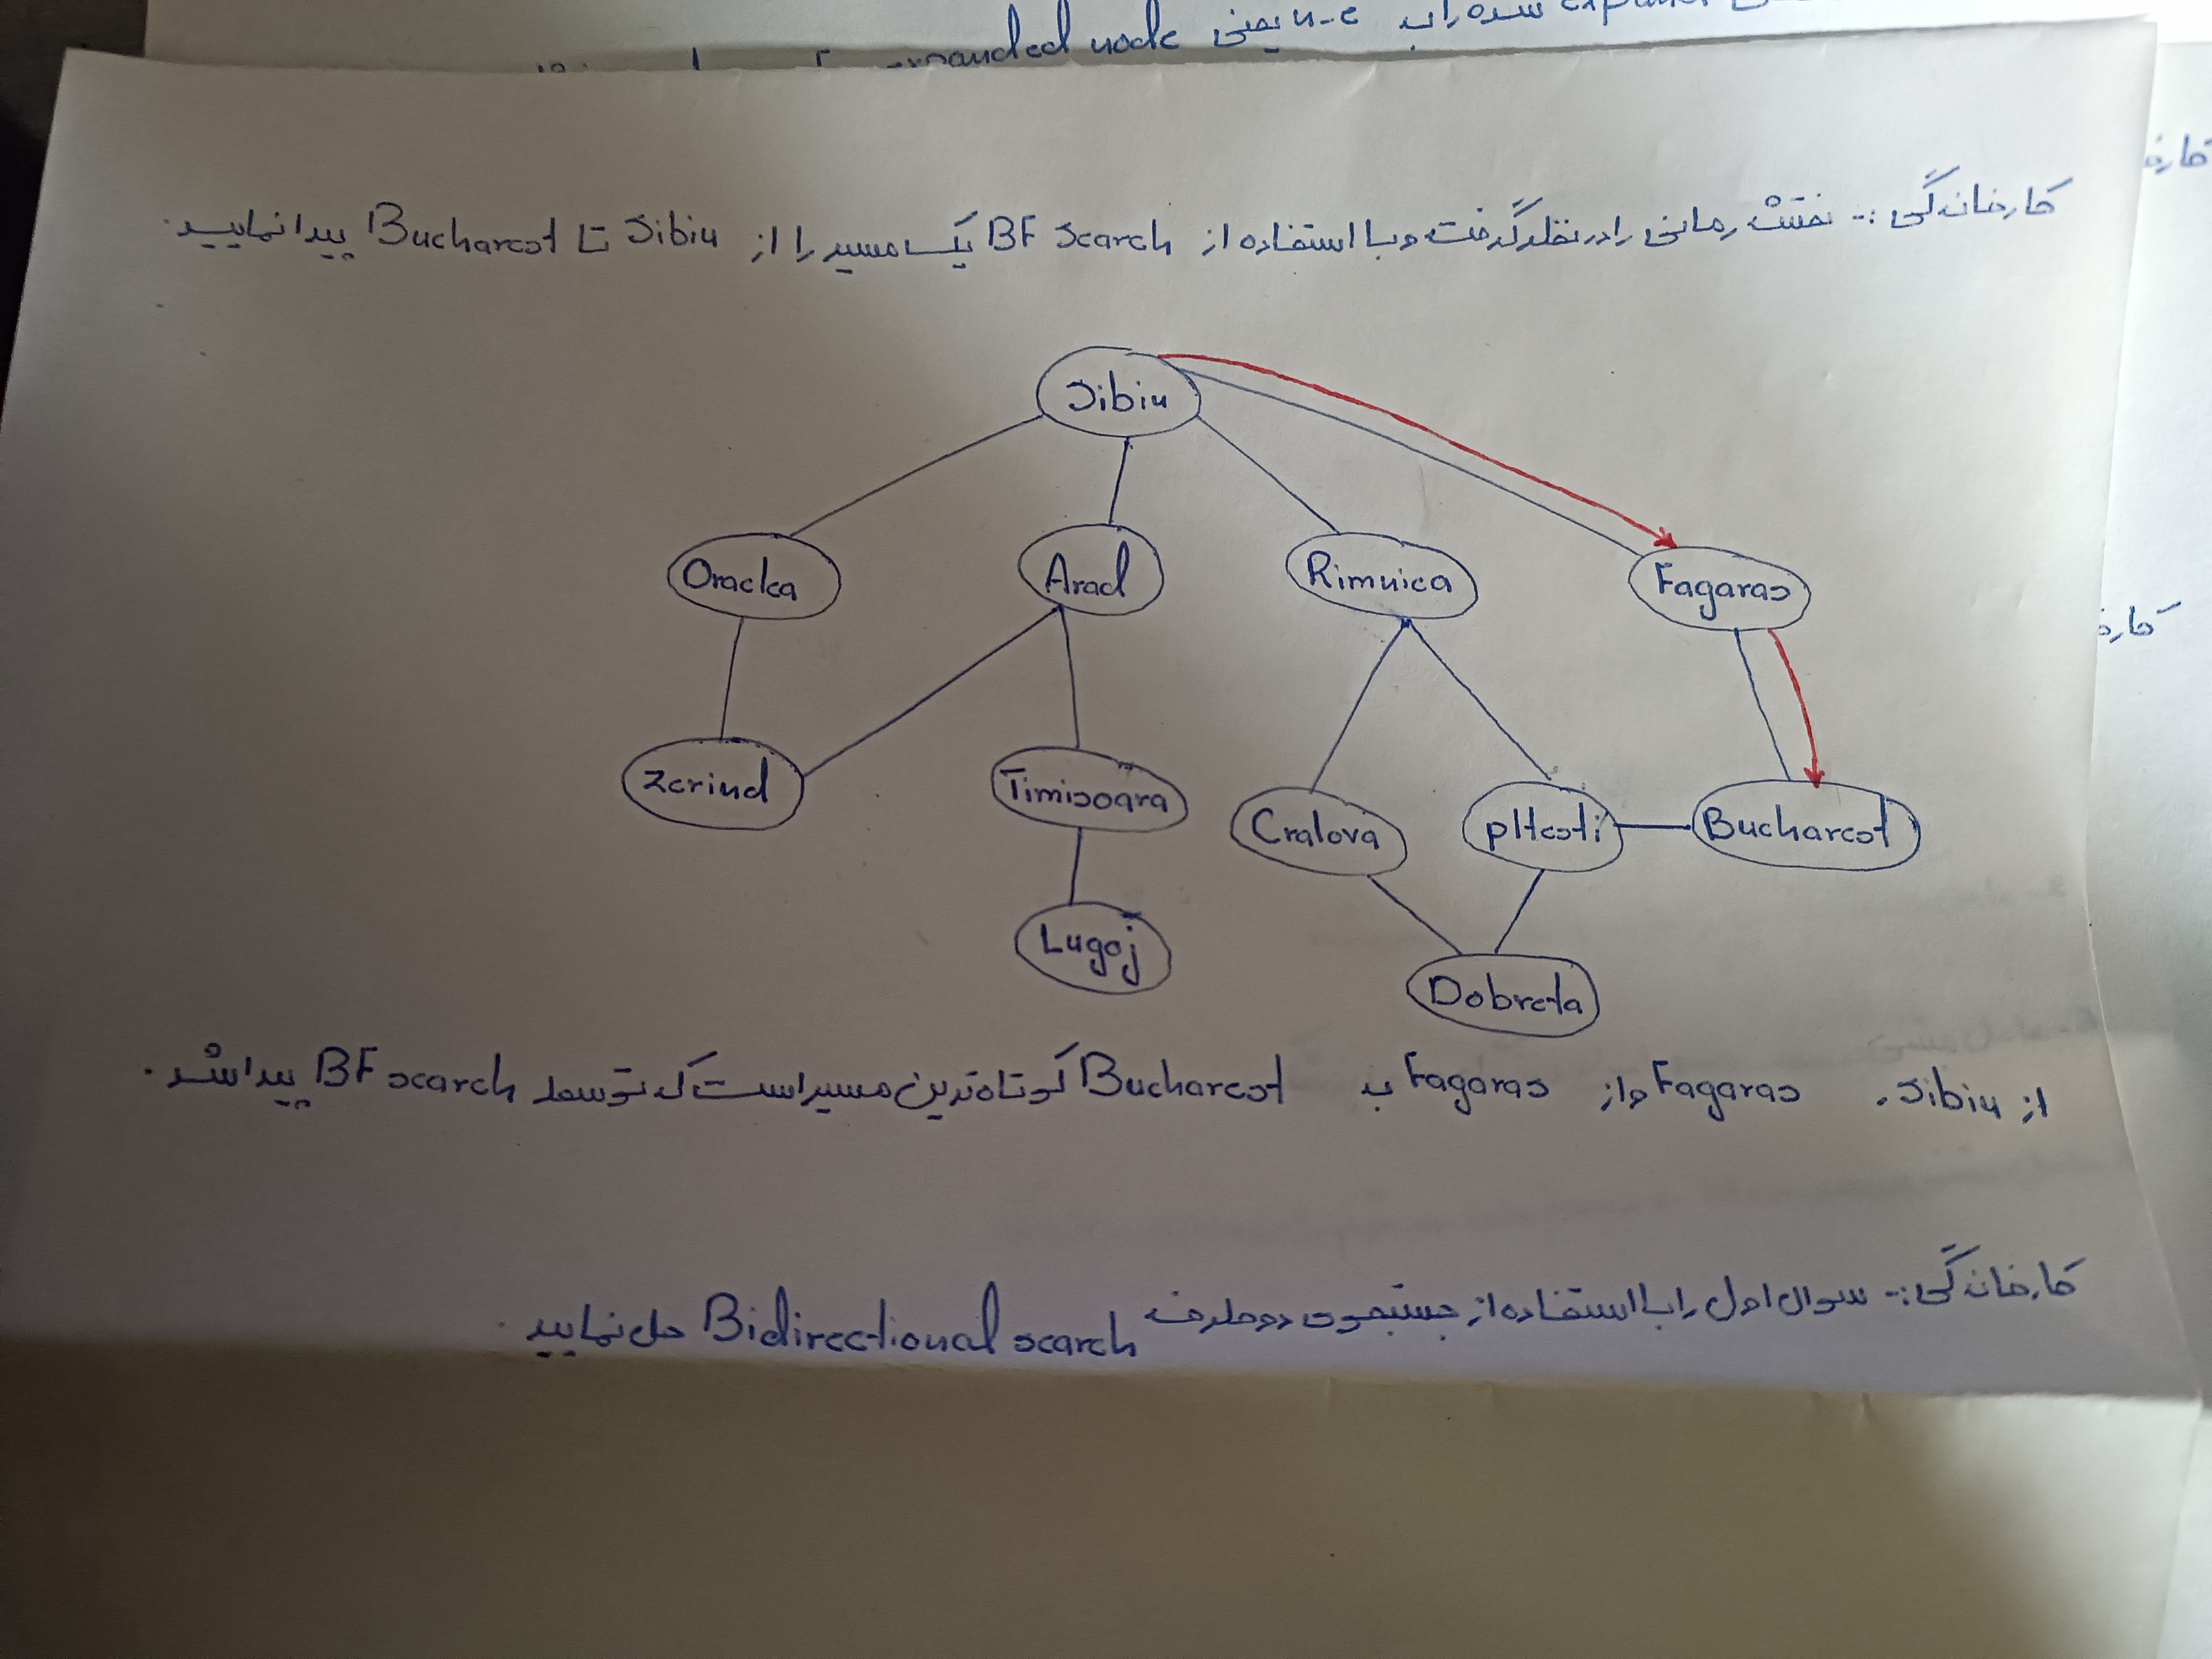 expanded node یعنی n-e شده را به
کارخانه‌گی :- نقشه رمانی را در نظر گرفته و با استفاده از BF Search یک مسیر را از Sibiu تا Bucharest پیدا نمایید.
Sibiu
Oradea Arad Rimnica Fagaras
Zerind Timisoara Cralova pltesti Bucharest
Lugoj Dobreta
از Sibiu، Fagaras واز Fagaras به Bucharest کوتاه ترین مسیر است که توسط BF search پیدا شد.
کارخانه‌گی :- سوال اول را با استفاده از جستجوی دو طرفه Bidirectional search حل نمایید.